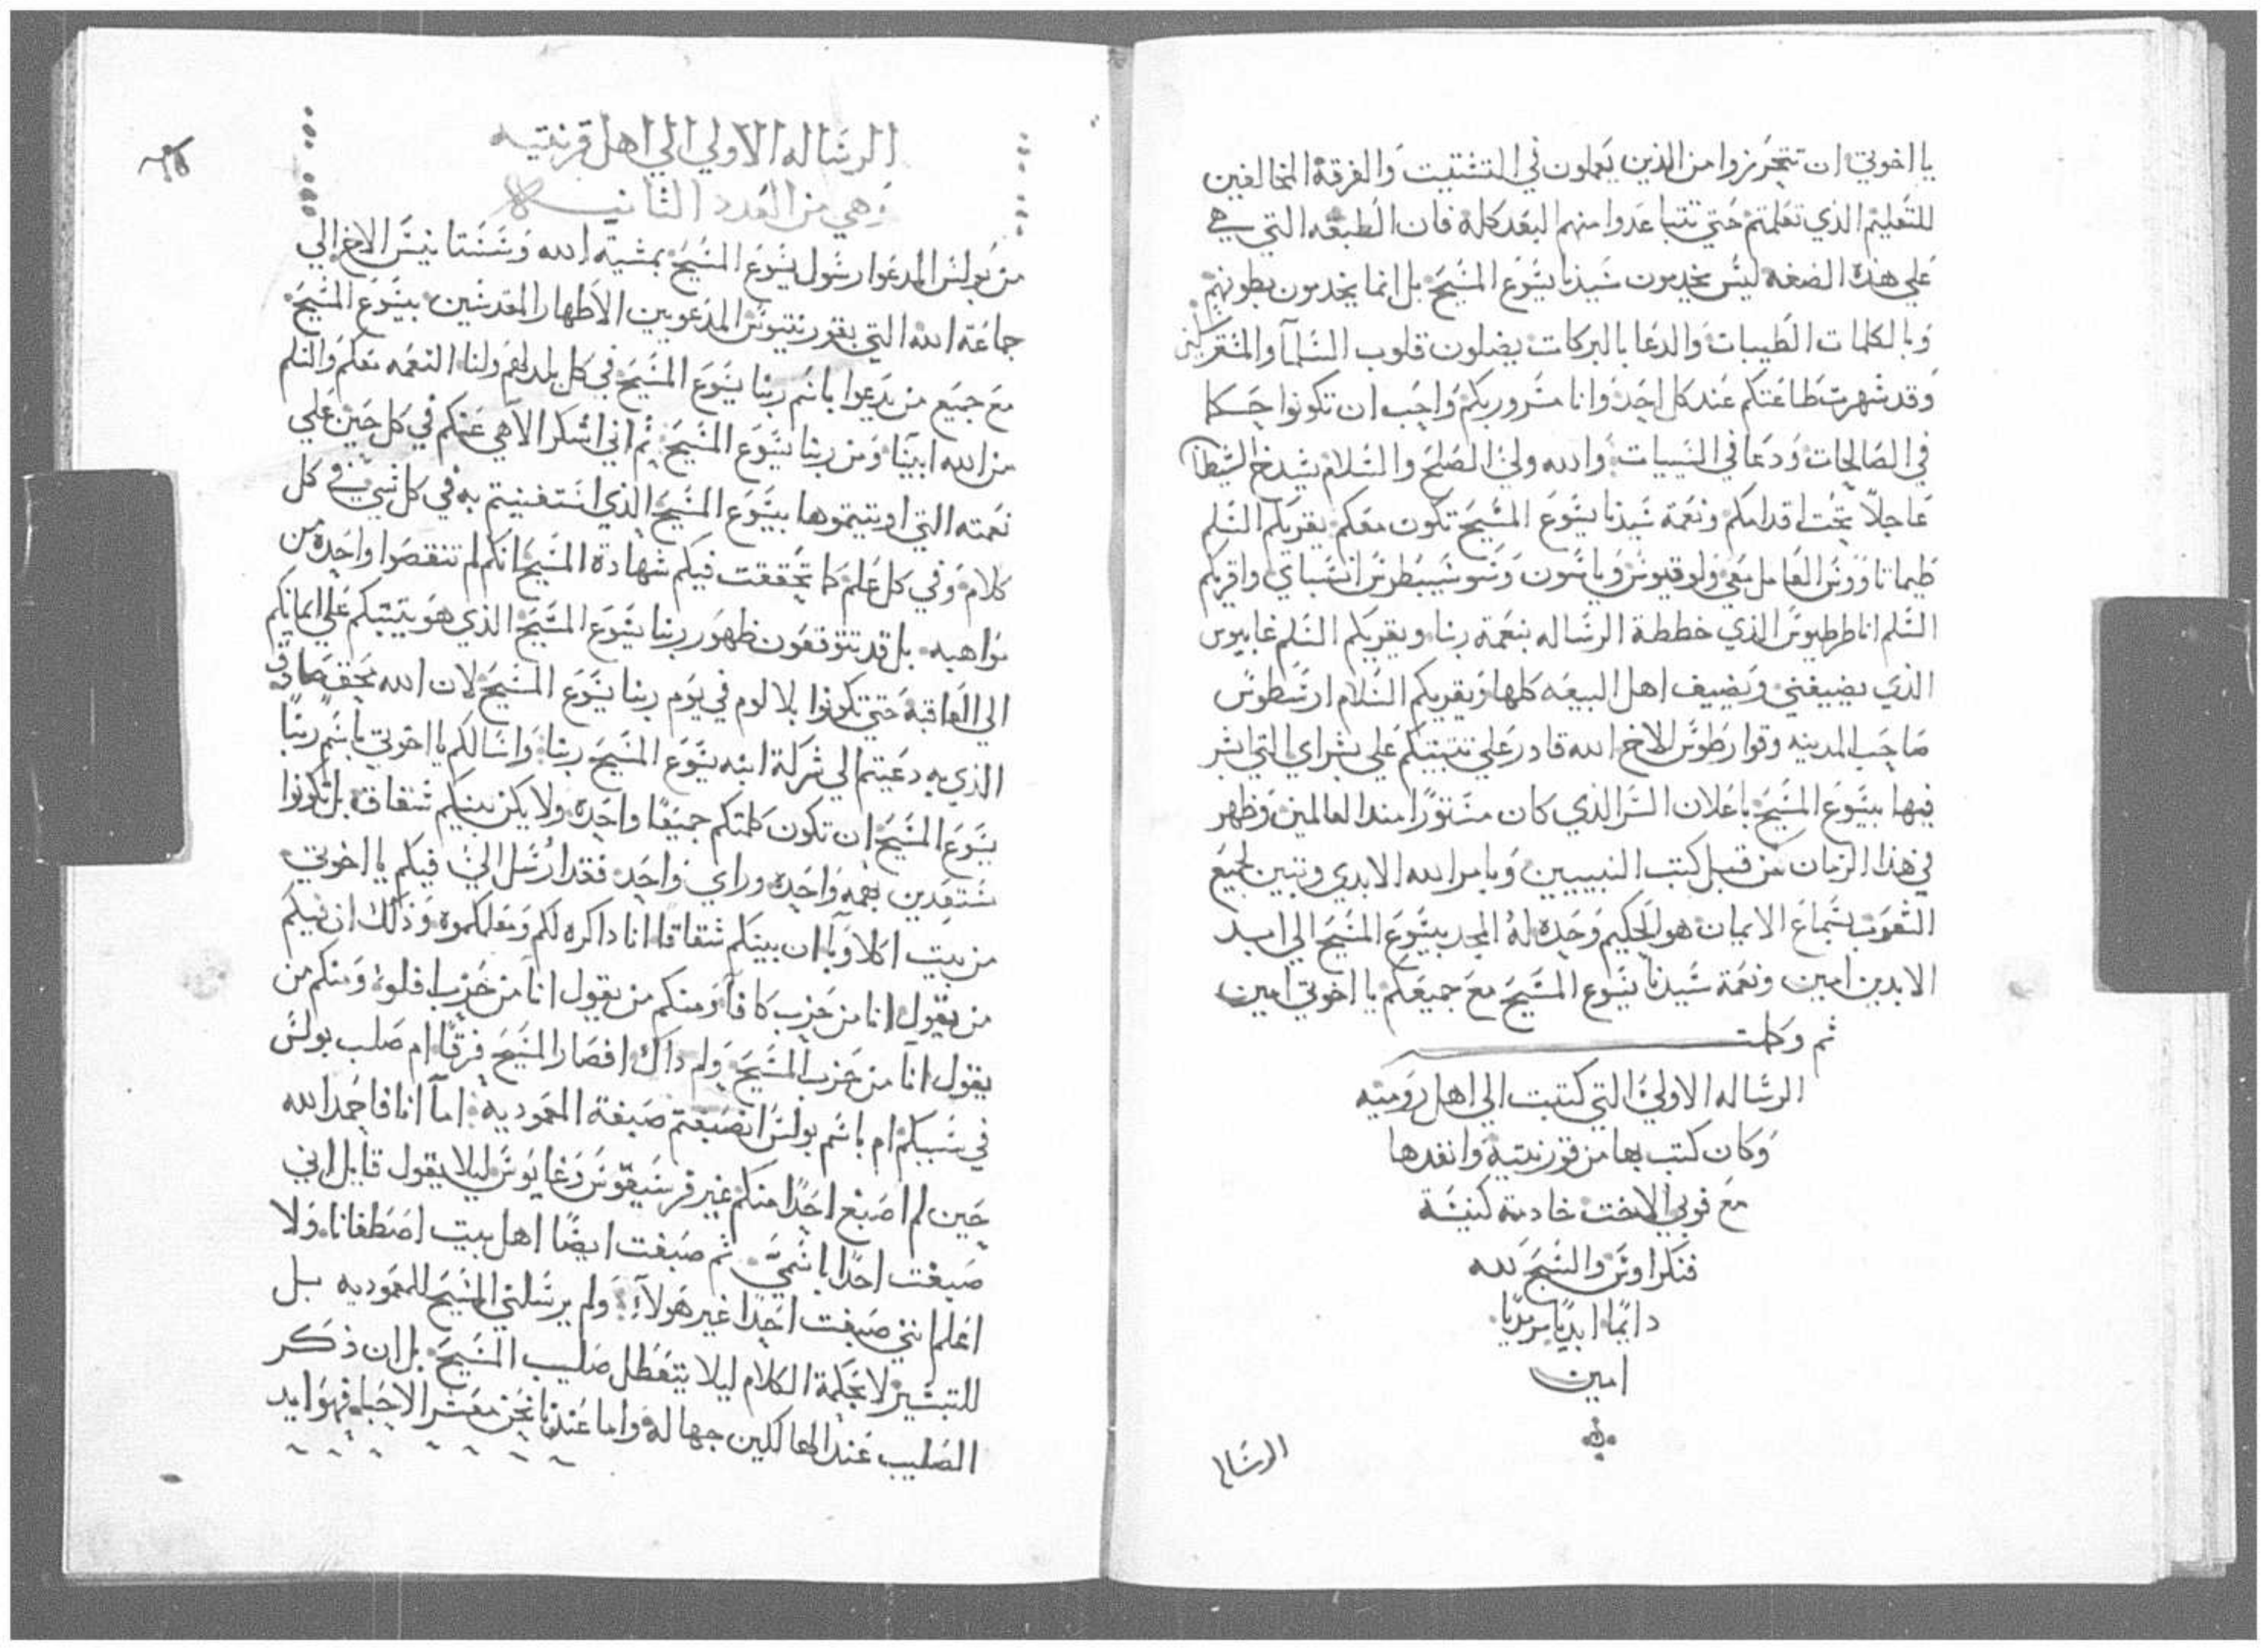 يا اخوتي ان تتحرزوا من الذين يعملون في التشتيت والفرقة المخالفين
للتعليم الذي تعلمتم حتي تتباعدوا منهم البعد كله فان الطبقه التي هي
علي هذه الصفه ليس يخدمون سيدنا يسوع المسيح بل انما يخدمون بطونهم
وبالكلمات الطيبات والدعا بالبركات يضلون قلوب السلما
وقد شهرت طاعتكم عند كل احد وانا مسرور بكم واجب ان تكونوا حكما
في الصالحات ودعا في السيات والله ولي الصلح والسلام يشدخ الشيطان
عاجلا تحت اقدامكم ونعمة سيدنا يسوع المسيح تكون معكم يقريكم السلم
طيماتاووس العامل معي ولوقيوس وياسون وسوسيبطرس انسباي واقريكم
السلم انا طرطيوس الذي خططة الرساله بنعمة ربنا ويقريكم السلم غاييوس
الذي يضيفني ويضيف اهل البيعه كلها ويقريكم السلام ارسطوس
صاحب المدينه وقوارطوس الاخ الله قادر علي تثبيتكم علي بشراي التي ابشر
فيها بيسوع المسيح باعلان السر الذي كان مستورا منذ العالمين وظهر
في هذا الزمان من قبل كتب النبييين وبامر الله الابدي وتبين لجميع
الشعوب بسماع الايمان هو الحكيم وحده له المجد بيسوع المسيح الي ابد
الابدين امين ونعمة سيدنا يسوع المسيح مع جميعكم يا اخوتي امين
ثم وكملت
الرساله الاولي التي كتبت الي اهل روميه
وكان كتب بها من قورنتية وانفدها
مع فوبي الاخت خادمة كنيسة
قنكراوس والسبح لله
دايما ابديا سرمديا
امين
الرساله
الرساله الاولي الي اهل قرنتيه
وهي من العدد الثانيه
من بولس المدعوا رسول يسوع المسيح بمشية الله وسستانيس الاخ الي
جماعة الله التي بقورنتيوس المدعويين الاطهار المقدسين بيسوع المسيح
مع جميع من يدعوا باسم ربنا يسوع المسيح في كل بلد لهم ولنا النعمه معكم والسلم
من الله ابينا ومن ربنا يسوع المسيح ثم اني اشكر الاهي عنكم في كل حين علي
نعمته التي اوتيتموها بيسوع المسيح الذي استغنيتم به في كل شي في كل
كلام وفي كل علم كما تحققت فيكم شهادة المسيح انكم لم تنقصوا واحده من
مواهبه بل قد تتوقعون ظهور ربنا يسوع المسيح الذي هو يثبتكم علي ايمانكم
الي العاقبة حتي تكونوا بلا لوم في يوم ربنا يسوع المسيح لان الله بحق صادق
الذي به دعيتم الي شركة ابنه يسوع المسيح ربنا واسالكم يا اخوتي باسم ربنا
يسوع المسيح ان تكون كلمتكم جميعا واحده ولا يكن بينكم شقاق بل تكونوا
مستعدين بهمه واحده وراي واحد فقد ارسل الي فيكم يا اخوتي
من بيت اكلاوبا ان بينكم شقاقا انا داكره لكم ومعلمكموه وذلك ان فيكم
من يقول انا من حزب كافا ومنكم من يقول انا من حزب افلوا ومنكم من
يقول انا من حزب المسيح ولم داك افصار المسيح فرقا ام صلب بولس
في سببكم ام باسم بولس انصبغتم صبغة المعموديه اما انا فاحمد الله
حين لم اصبغ احدا منكم غير قرسيقوس وغايوس ليلا يقول قايل اني
صبغت احدا باسمي ثم صبغت ايضا اهل بيت اصطفانا ولا
اعلم انني صبغت احدا غير هولاء ولم يرسلني المسيح للمعموديه بل
للتبشير لا بحكمة الكلام ليلا يتعطل صليب المسيح بل ان ذكر
الصليب عند الهالكين جهاله واما عندنا نحن معشر الاحيا فهو ايد